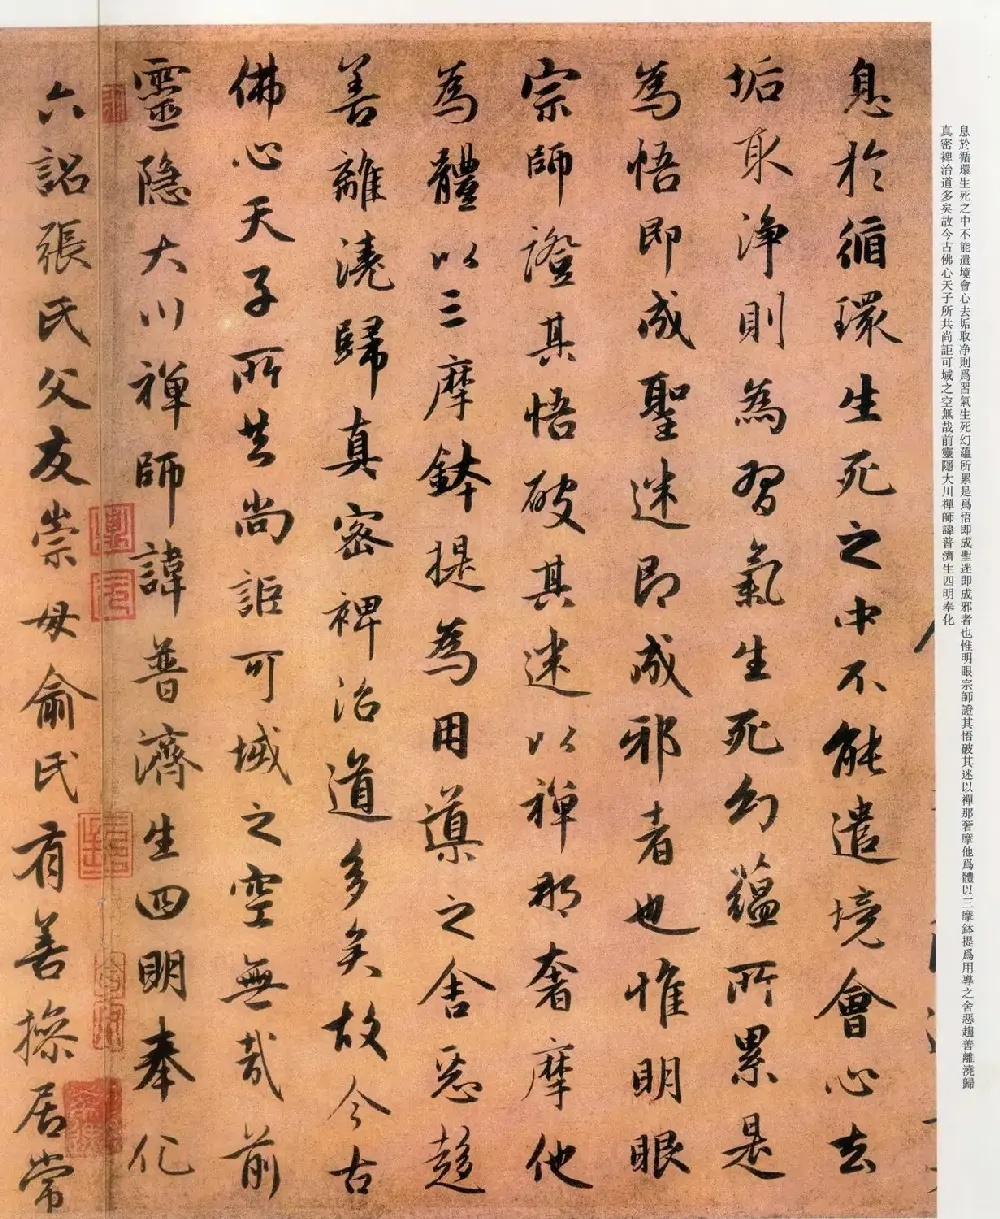 息於循環生死之中不能遣境會心去垢取净則爲習氣生死幻蘊所累是爲悟即成聖迷即成邪者也惟明眼宗師證其悟破其迷以禪那奢摩他爲體以三摩鉢提爲用導之舍惡趨善離澆歸
真密裨治道多矣故今古佛心天子所共尚詎可域之空無哉前靈隱大川禪師諱普濟生四明奉化
息於循環生死之中不能遣境會心去
垢取淨則為習氣生死幻蘊所累是
為悟即成聖迷即成邪者也惟明眼
宗師證其悟破其迷以禪那奢摩他
為體以三摩鉢提為用導之舍惡趨
善離澆歸真密裨治道多矣故今古
佛心天子所共尚詎可域之空無哉前
靈隐大川禪師諱普濟生四明奉化
六詔張氏父友崇母俞氏有善操居常